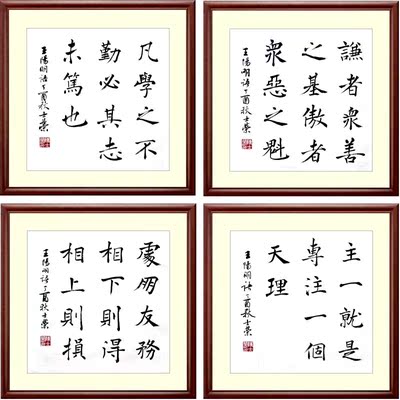 凡學之不
勤必其志
未篤也
王陽明語丁酉秋士榮
謙者衆善
之基傲者
衆惡之魁
王陽明語丁酉秋士榮
處朋友務
相下則得
相上則損
王陽明語丁酉秋士榮
主一就是
專注一個
天理
王陽明語丁酉秋士榮